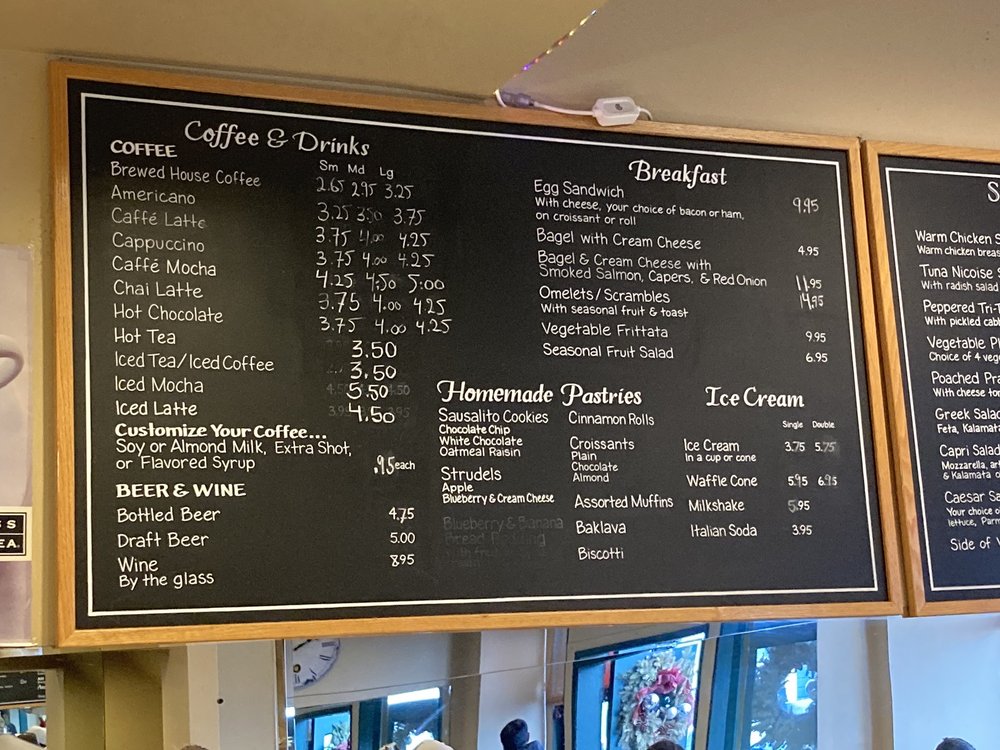 Coffee & Drinks
COFFEE
Sm Md Lg
Brewed House Coffee 2.65 2.95 3.25
Americano 3.25 3.50 3.75
Caffé Latte 3.75 4.00 4.25
Cappuccino 3.75 4.00 4.25
Caffé Mocha 4.25 4.50 5.00
Chai Latte 3.75 4.00 4.25
Hot Chocolate 3.75 4.00 4.25
Hot Tea 3.50
Iced Tea/Iced Coffee 3.50
Iced Mocha 5.50
Iced Latte 4.50
Customize Your Coffee...
Soy or Almond Milk, Extra Shot,
or Flavored Syrup .95 each
BEER & WINE
Bottled Beer 4.75
Draft Beer 5.00
Wine 8.95
By the glass
Breakfast
Egg Sandwich 9.95
With cheese, your choice of bacon or ham,
on croissant or roll
Bagel with Cream Cheese 4.95
Bagel & Cream Cheese with
Smoked Salmon, Capers, & Red Onion 11.95
Omelets/Scrambles 14.95
With seasonal fruit & toast
Vegetable Frittata 9.95
Seasonal Fruit Salad 6.95
Homemade Pastries
Sausalito Cookies
Chocolate Chip
White Chocolate
Oatmeal Raisin
Strudels
Apple
Blueberry & Cream Cheese
Blueberry & Banana
Bread Pudding
Cinnamon Rolls
Croissants
Plain
Chocolate
Almond
Assorted Muffins
Baklava
Biscotti
Ice Cream
Single Double
Ice Cream 3.75 5.75
In a cup or cone
Waffle Cone 5.95 6.95
Milkshake 5.95
Italian Soda 3.95
S
Warm Chicken S
Warm chicken breas
Tuna Nicoise S
With radish salad
Peppered Tri-T
With pickled cab
Vegetable Pl
Choice of 4 veg
Poached Pra
With cheese tor
Greek Salad
Feta, Kalamata
Capri Salad
Mozzarella, art
& Kalamata o
Caesar Sa
Your choice o
lettuce, Parm
Side of V
S S
E A